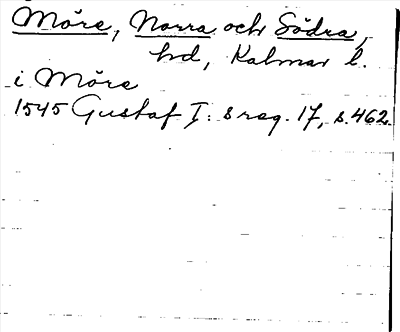 Möre, Norra och Södra,
hd, Kalmar l.
i Möre
1545 Gustaf I:s reg. 17, s. 462.